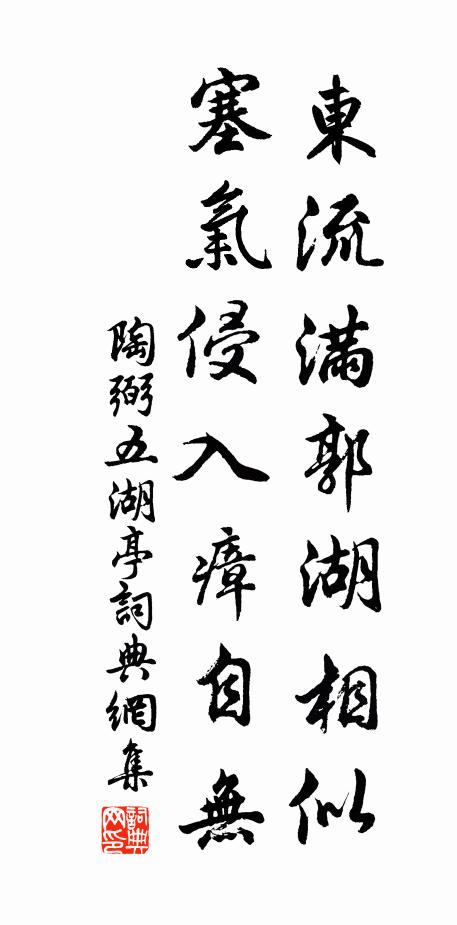 東流滿郭湖相似
塞氣侵入瘴自無
陶弼五湖亭詞典網集
詞典网印